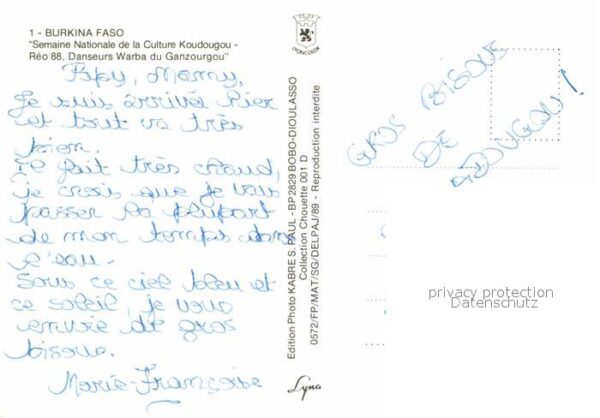 1 - BURKINA FASO
"Semaine Nationale de la Culture Koudougou -
Réo 88, Danseurs Warba du Ganzourgou"
LYONCOLOR
Papy, Mamy,
Je suis arrivée hier
et tout va très
bien.
Il fait très chaud,
je crois que je vais
passer la plupart
de mon temps dans
l'eau.
Sous ce ciel bleu et
ce soleil, je vous
envoie de gros
bisous.
Marie-Françoise
Edition Photo KABRE S. PAUL - BP 2829 BOBO-DIOULASSO
Collection Chouette 001 D
0572/FP/MAT/SG/DELPAJ/89 - Reproduction interdite
Lyna
GROS BISOUS
DE
privacy protection
Datenschutz